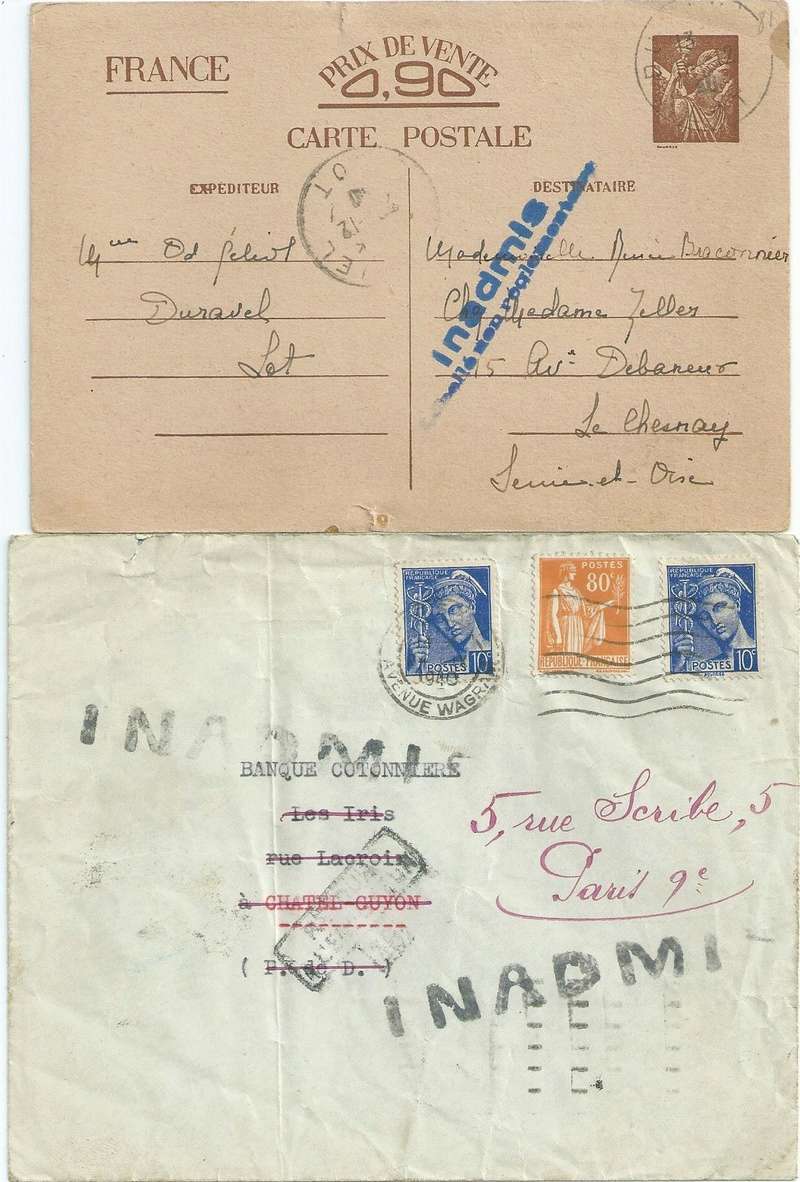 FRANCE
PRIX DE VENTE
0,90
CARTE POSTALE
EXPÉDITEUR
DESTINATAIRE
Inadmis
non réglementaire
Mme Od
Duravel
Lot
Mademoiselle Braconnier
Chez Madame Zeller
15 Ave Debaneur
Le Chesnay
Seine-et-Oise
RÉPUBLIQUE FRANÇAISE
POSTES 10c
POSTES
80c
RÉPUBLIQUE FRANÇAISE
RÉPUBLIQUE FRANÇAISE
POSTES 10c
1940
AVENUE WAGRA
INADMIS
BANQUE COTONNIERE
Les Iris
rue Lacroix
à CHATEL GUYON
( P. de D. )
5, rue Scribe, 5
Paris 9e
INADMI